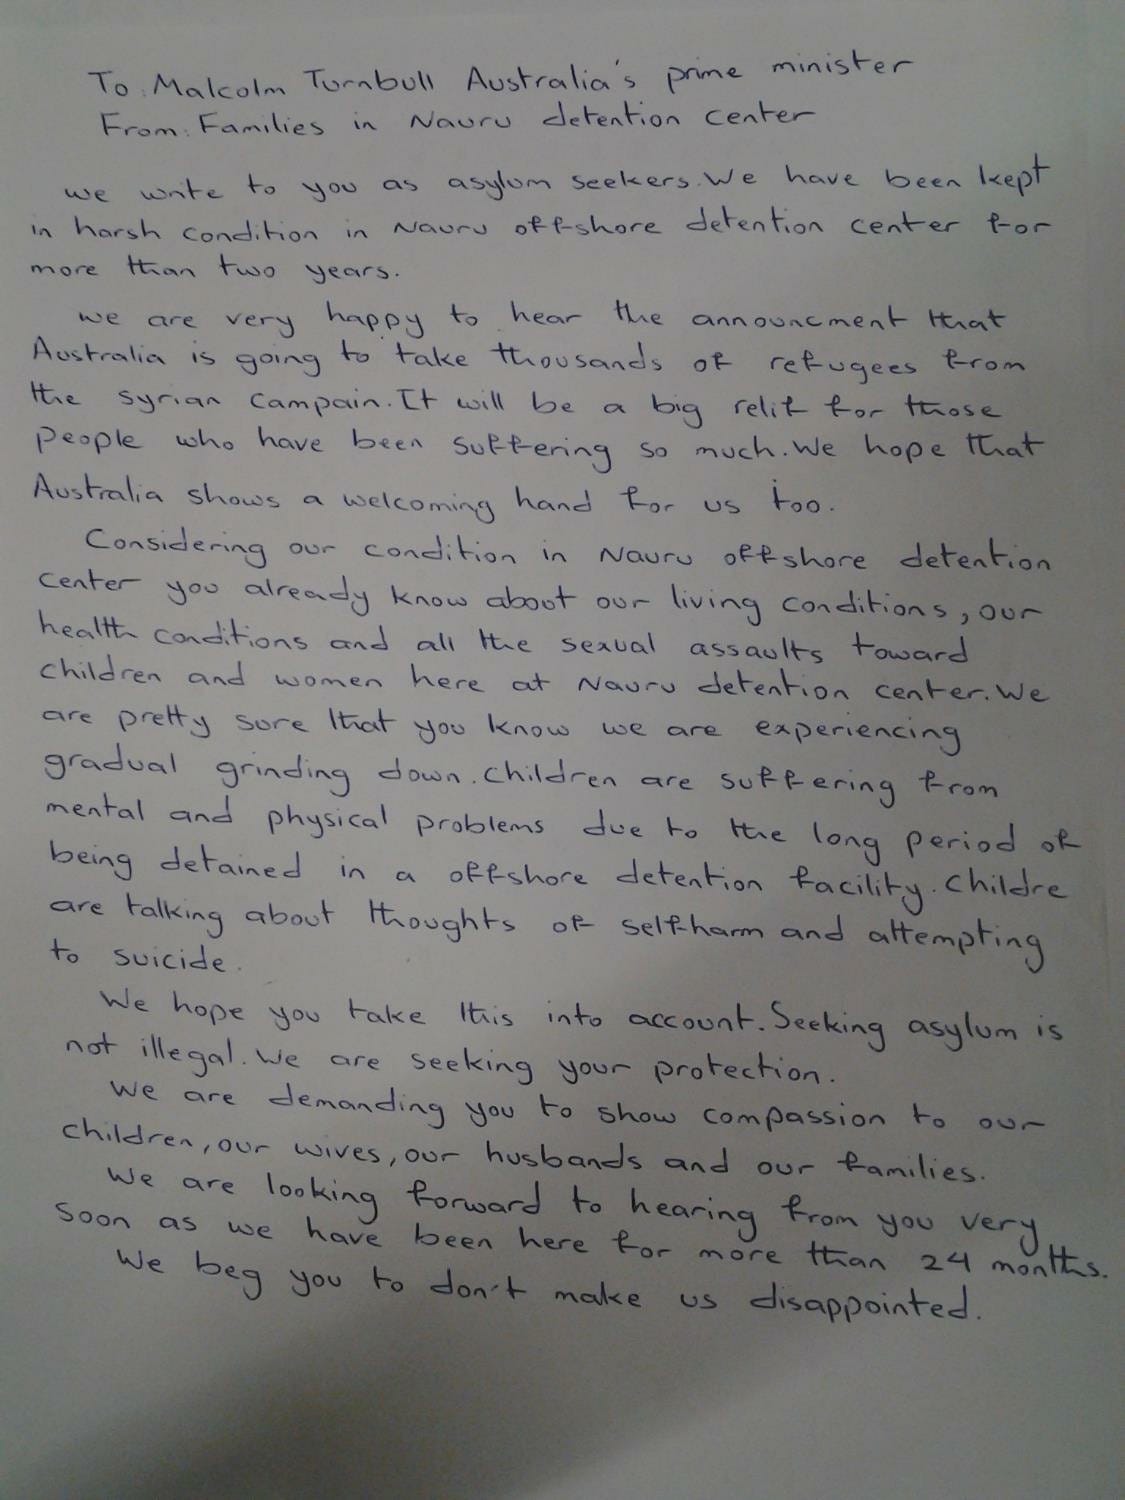 To: Malcolm Turnbull Australia's prime minister
From: Families in Nauru detention center
we write to you as asylum seekers. We have been kept
in harsh condition in Nauru offshore detention center for
more than two years.
we are very happy to hear the announcment that
Australia is going to take thousands of refugees from
the Syrian Campain. It will be a big relif for those
people who have been suffering so much. We hope that
Australia shows a welcoming hand for us too.
Considering our condition in Nauru offshore detention
center you already know about our living conditions, our
health conditions and all the sexual assaults toward
children and women here at Nauru detention center. We
are pretty sure that you know we are experiencing
gradual grinding down. Children are suffering from
mental and physical problems due to the long period of
being detained in a offshore detention facility. Childre
are talking about thoughts of selfharm and attempting
to suicide.
We hope you take this into account. Seeking asylum is
not illegal. We are seeking your protection.
We are demanding you to show compassion to our
children, our wives, our husbands and our families.
We are looking forward to hearing from you very
soon as we have been here for more than 24 months.
We beg you to don't make us disappointed.